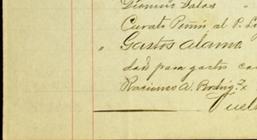 Dionisio Salas
Curato Penin al P. L
" Gastos alam
dad para gastos ca
Raciones A. Rodrig.z
Vuel